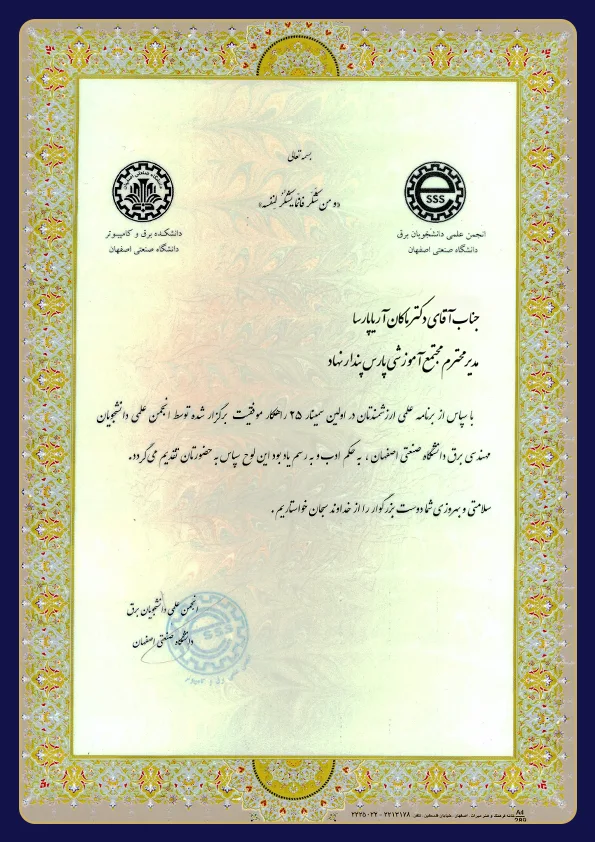 بسمه تعالی
«و من شکر فانما یشکر لنفسه»
SSS
انجمن علمی دانشجویان برق
دانشگاه صنعتی اصفهان
دانشکده برق و کامپیوتر
دانشگاه صنعتی اصفهان
جناب آقای دکتر ماکان آریاپارسا
مدیر محترم مجتمع آموزشی پارس پندار نهاد
با سپاس از برنامه علمی ارزشمندتان در اولین سمینار ۲۵ راهکار موفقیت برگزار شده توسط انجمن علمی دانشجویان
مهندسی برق دانشگاه صنعتی اصفهان ، به حکم ادب و به رسم یاد بود این لوح سپاس به حضورتان تقدیم می گردد.
سلامتی و بهروزی شما دوست بزرگوار را از خداوند سبحان خواستاریم .
انجمن علمی دانشجویان برق
دانشگاه صنعتی اصفهان
SSS
خانه فرهنگ و هنر میراث، اصفهان ،خیابان فلسطین، تلفن: ۲۲۱۲۱۷۸ - ۲۲۲۵۰۲۲
A4